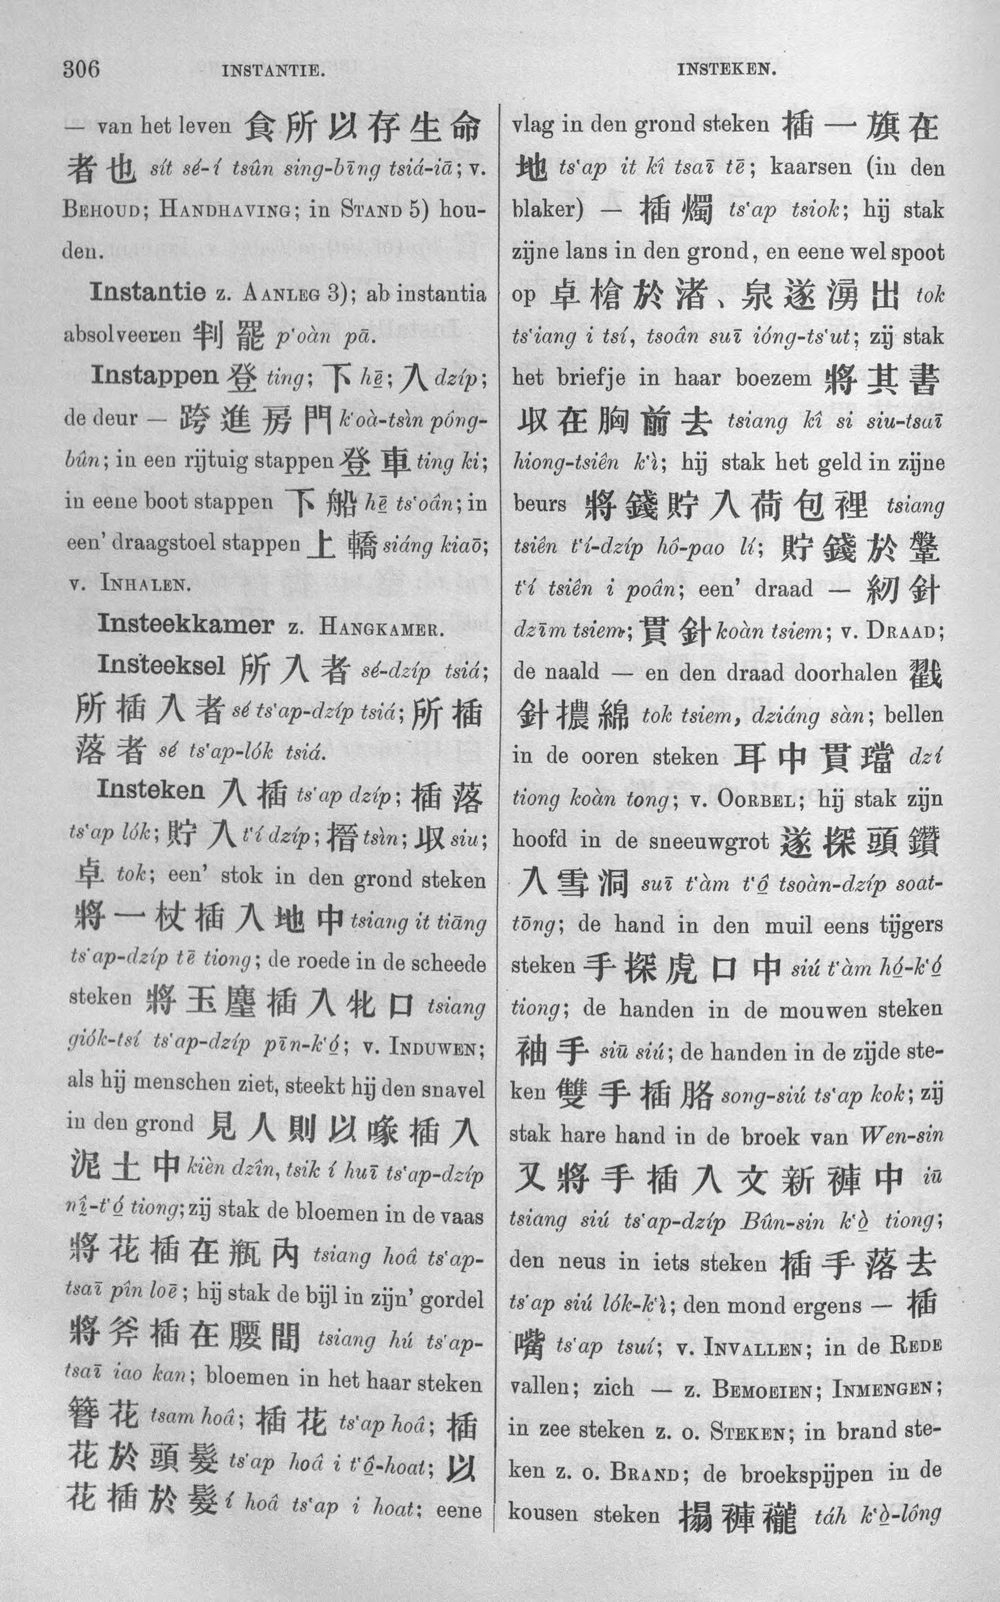 306
INSTANTIE.
INSTEKEN.
— van het leven 食所以存生命
者也 sít sé-í tsûn sing-bīng tsiá-iā; v.
BEHOUD; HANDHAVING; in STAND 5) hou-
den.
Instantie z. AANLEG 3); ab instantia
absolveeren 判罷 p‘oàn pā.
Instappen 登 ting; 下 hē; 入 dzíp;
de deur — 跨進房門 k‘oà-tsìn póng-
bûn; in een rijtuig stappen 登車 ting ki;
in eene boot stappen 下船 hē ts‘oân; in
een’ draagstoel stappen 上轎 siáng kiaō;
v. INHALEN.
Insteekkamer z. HANGKAMER.
Insteeksel 所入者 sé-dzíp tsiá;
所插入者 sé ts‘ap-dzíp tsiá; 所插
落者 sé ts‘ap-lók tsiá.
Insteken 入插 ts‘ap dzíp; 插落
ts‘ap lók; 貯入 t‘í dzíp; 搢 tsìn; 収 siu;
卓 tok; een’ stok in den grond steken
將一杖插入地中 tsiang it tiāng
ts‘ap-dzíp tē tiong; de roede in de scheede
steken 將玉麈插入牝口 tsiang
giók-tsí ts‘ap-dzíp pīn-k‘ó; v. INDUWEN;
als hij menschen ziet, steekt hij den snavel
in den grond 見人則以喙插入
泥土中 kièn dzîn, tsik í huī ts‘ap-dzíp
nî-t‘ó tiong; zij stak de bloemen in de vaas
將花插在瓶內 tsiang hoâ ts‘ap-
tsaī pîn loē; hij stak de bijl in zijn’ gordel
將斧插在腰間 tsiang hú ts‘ap-
tsaī iao kan; bloemen in het haar steken
簪花 tsam hoâ; 插花 ts‘ap hoâ; 插
花於頭髮 ts‘ap hoâ i t‘ô-hoat; 以
花插於髮 í hoâ ts‘ap i hoat; eene
vlag in den grond steken 插一旗在
地 ts‘ap it kî tsaī tē; kaarsen (in den
blaker) — 插燭 ts‘ap tsiok; hij stak
zijne lans in den grond, en eene wel spoot
op 卓槍於渚、泉遂湧出 tok
ts‘iang i tsí, tsoân suī ióng-ts‘ut; zij stak
het briefje in haar boezem 將其書
収在胸前去 tsiang kî si siu-tsaī
hiong-tsiên k‘ì; hij stak het geld in zijne
beurs 將錢貯入荷包裡 tsiang
tsiên t‘í-dzíp hô-pao lí; 貯錢於鞶
t‘í tsiên i poân; een’ draad — 紉針
dzīm tsiem; 貫針 koàn tsiem; v. DRAAD;
de naald — en den draad doorhalen 戳
針攮綿 tok tsiem, dziáng sàn; bellen
in de ooren steken 耳中貫璫 dzí
tiong koàn tong; v. OORBEL; hij stak zijn
hoofd in de sneeuwgrot 遂探頭鑽
入雪洞 suī t‘àm t‘ô tsoàn-dzíp soat-
tōng; de hand in den muil eens tijgers
steken 手探虎口中 siú t‘àm hó-k‘ó
tiong; de handen in de mouwen steken
袖手 siū siú; de handen in de zijde ste-
ken 雙手插胳 song-siú ts‘ap kok; zij
stak hare hand in de broek van Wen-sin
又將手插入文新褲中 iū
tsiang siú ts‘ap-dzíp Bûn-sin k‘ò tiong;
den neus in iets steken 插手落去
ts‘ap siú lók-k‘ì; den mond ergens — 插
嘴 ts‘ap tsuí; v. INVALLEN; in de REDE
vallen; zich — z. BEMOEIEN; INMENGEN;
in zee steken z. o. STEKEN; in brand ste-
ken z. o. BRAND; de broekspijpen in de
kousen steken 搨褲襱 táh k‘ò-lông